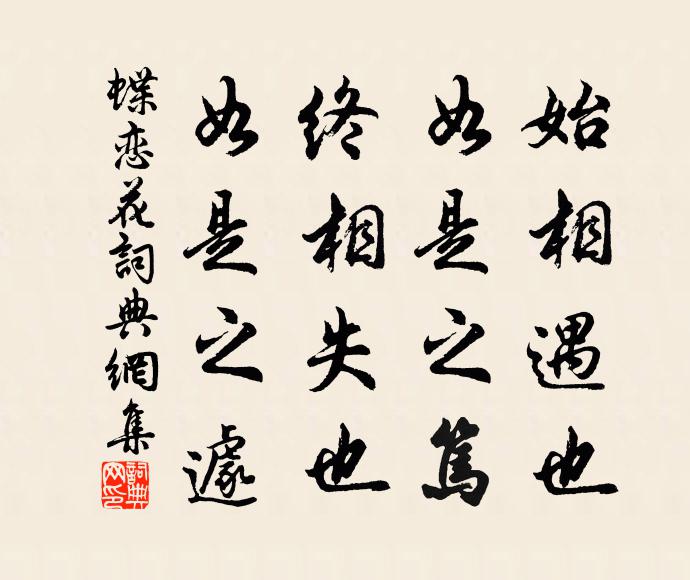 始相遇也
如是之篤
終相失也
如是之遽
蝶恋花詞典網集
詞典
网印